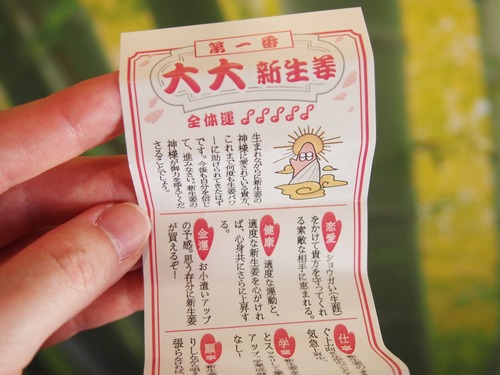 第一番
大大新生姜
全体運♪♪♪♪♪
生まれながらに新生姜の
神様に愛されている貴方。
これまで何度も生姜パワ
ーに助けられてきたはず
です。今後も自分を信じ
て、進みなさい。新生姜の
神様が御力を添えてくだ
さることでしょう。
恋愛 ショウガい【生涯】
をかけて貴方を守ってくれ
る素敵な相手に恵まれる。
健康 適度な運動と、
適度な新生姜を心がけれ
ば、心身共にさらに上昇す
る。
金運 お小遣いアップ
の予感。思う存分に新生姜
が買えるぞー
仕事
ぐ上
気急
学業
とス
アップ
なし！
願事
りし
張らな